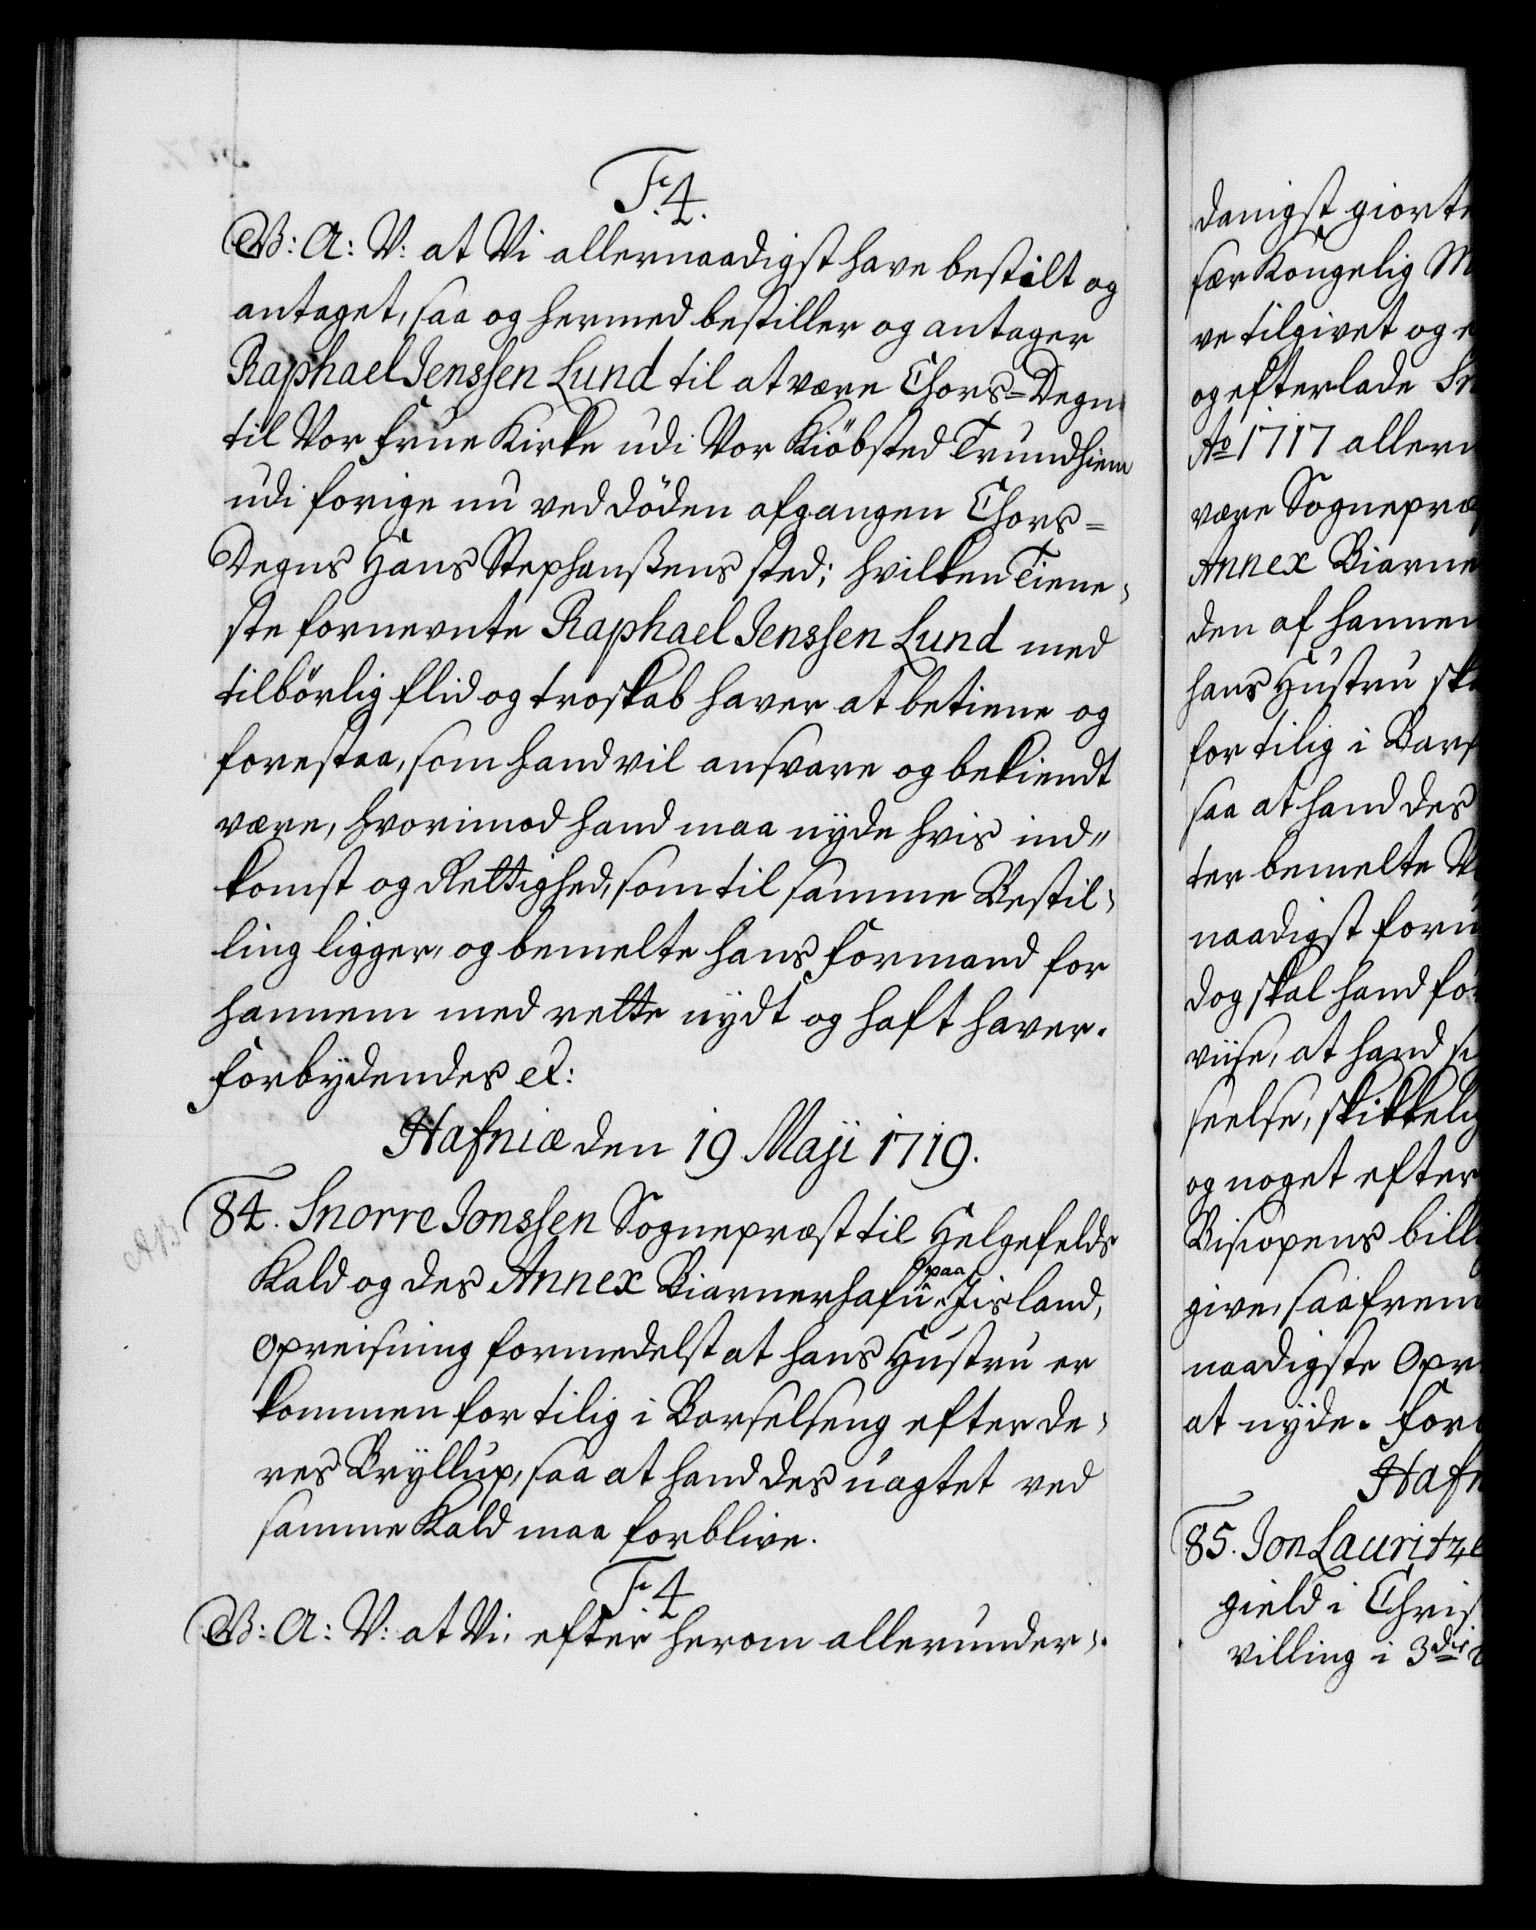 F. 4.
G. B: A: V: at Vi allernaadigst have bestilt og
antaget, saa og hermed bestiller og antager
Raphael Jenssen Lund til at være Chors-Degn
til Vor frue Kirke udi Vor Kiöbsted Trundhiem
udi forige nu ved döden afgangen Chors-
Degns Hans Stephanßens sted; hvilken Tiene-
ste fornevnte Raphael Jenssen Lund med
tilbörlig flid og troskab haver at betiene og
forestaa, som hand vil ansvare og bekiendt
være, hvorimod hand maa nyde hvis ind-
komst og Rettighed, som til samme Bestil-
ling ligger, og bemelte hans formand for
hannem med rette nydt og haft haver.
forbydendes ec:
Hafniæ den 19 Maji 1719.
84. Snorre Jonssen Sognepræst til Helgefelds
Kald og des Annex Biarnerhafn paa Jisland,
opreisning formedelst at hans Hustru er
kommen for tilig i Barselseng efter de-
res Bryllup, saa at hand des uagtet ved
samme Kald maa forblive.
F. 4
G. B: A: V: at Vi efter herom allerunder-
danigst giorte
sær Kongelig M
ve tilgivet og e
og efterlade Sn
Ao 1717 allern
være Sognepræ
Annex Biarne
den af hannem
hans Hustru sk
for tilig i Bars
saa at hand des
ter bemelte V
naadigst foru
dog skal hand for
viise, at hand s
seelse, skikkelig
og noget efter
Biscopens bill
give, saafrem
naadigste Opr
at nyde. forb
Hafn
85. Jon Lauritze
gield i Chris
villing i 3die